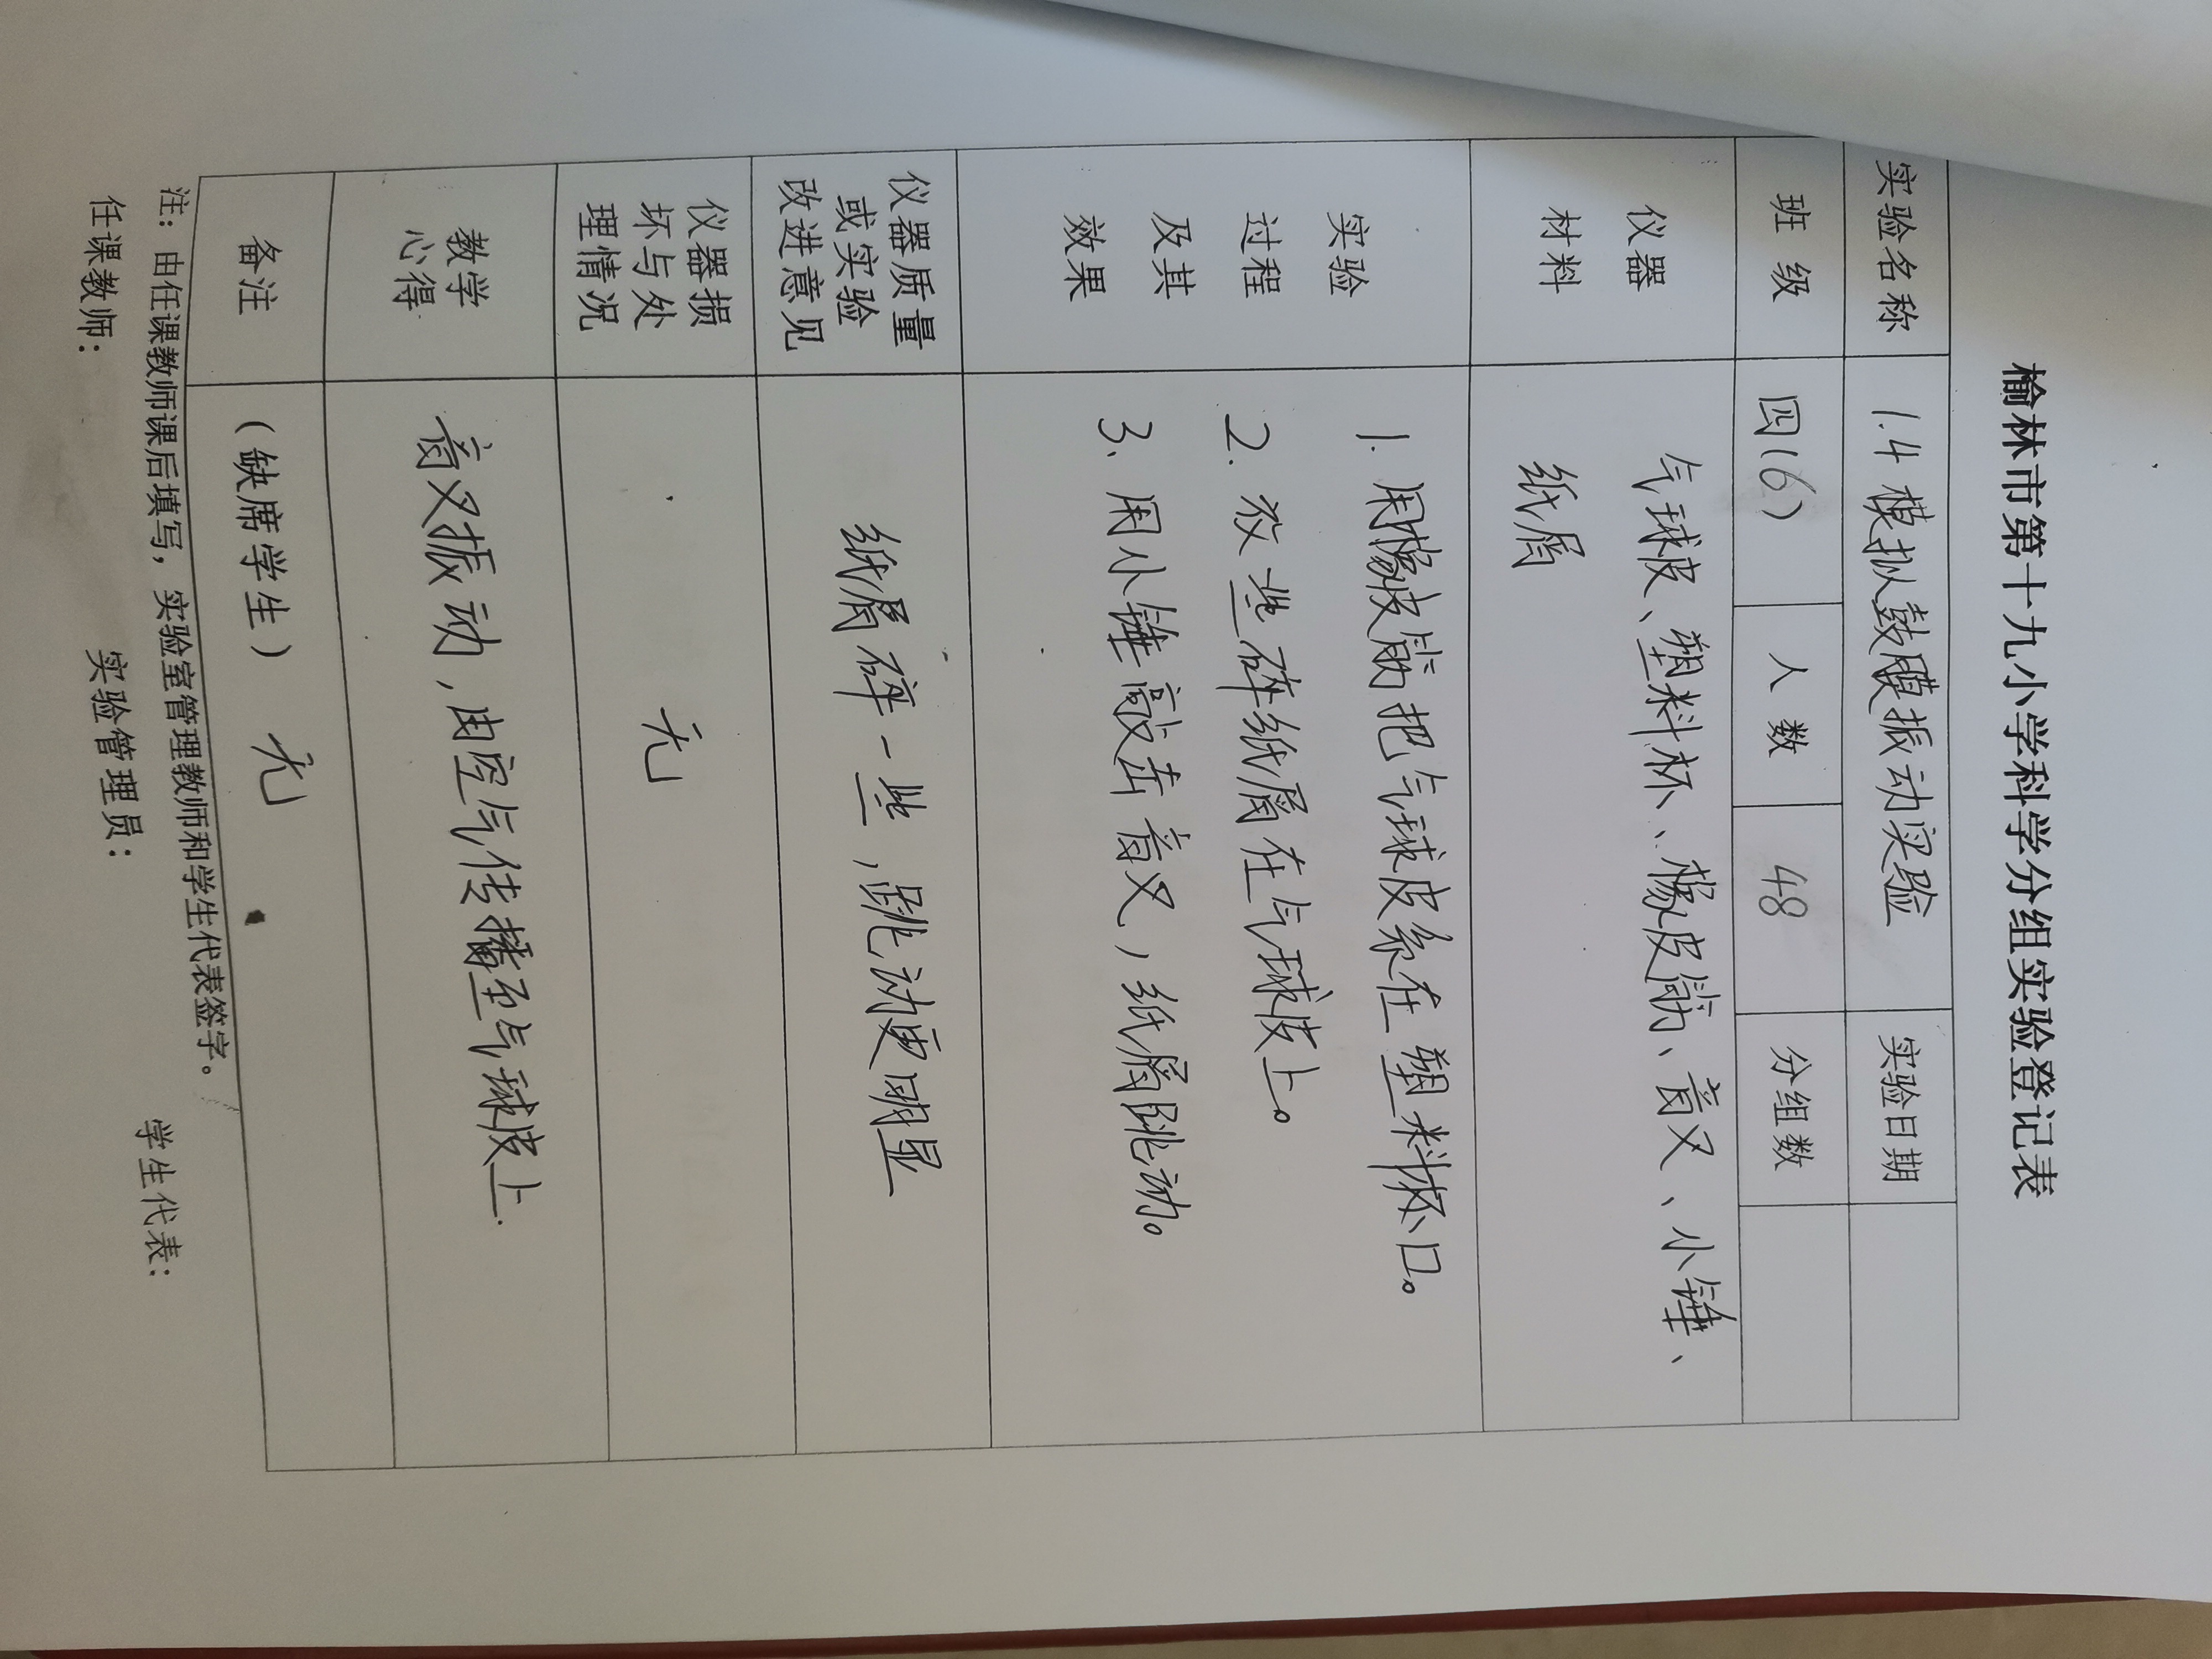 榆林市第十九小学科学分组实验登记表
实验名称 1.4 模拟鼓膜振动实验 实验日期
班 级 四(6) 人 数 48 分组数
仪器
材料
气球皮、塑料杯、橡皮筋、音叉、小锤、
纸屑
实验
过程
及其
效果
1. 用橡皮筋把气球皮系在塑料杯口。
2. 放些碎纸屑在气球皮上。
3、用小锤敲击音叉，纸屑跳动。
仪器质量
或实验
改进意见
纸屑碎一些，跳动更明显
仪器损
坏与处
理情况
无
教学
心得
音叉振动，由空气传播至气球皮上.
备注 （缺席学生） 无
注：由任课教师课后填写，实验室管理教师和学生代表签字。
任课教师： 实验管理员： 学生代表：